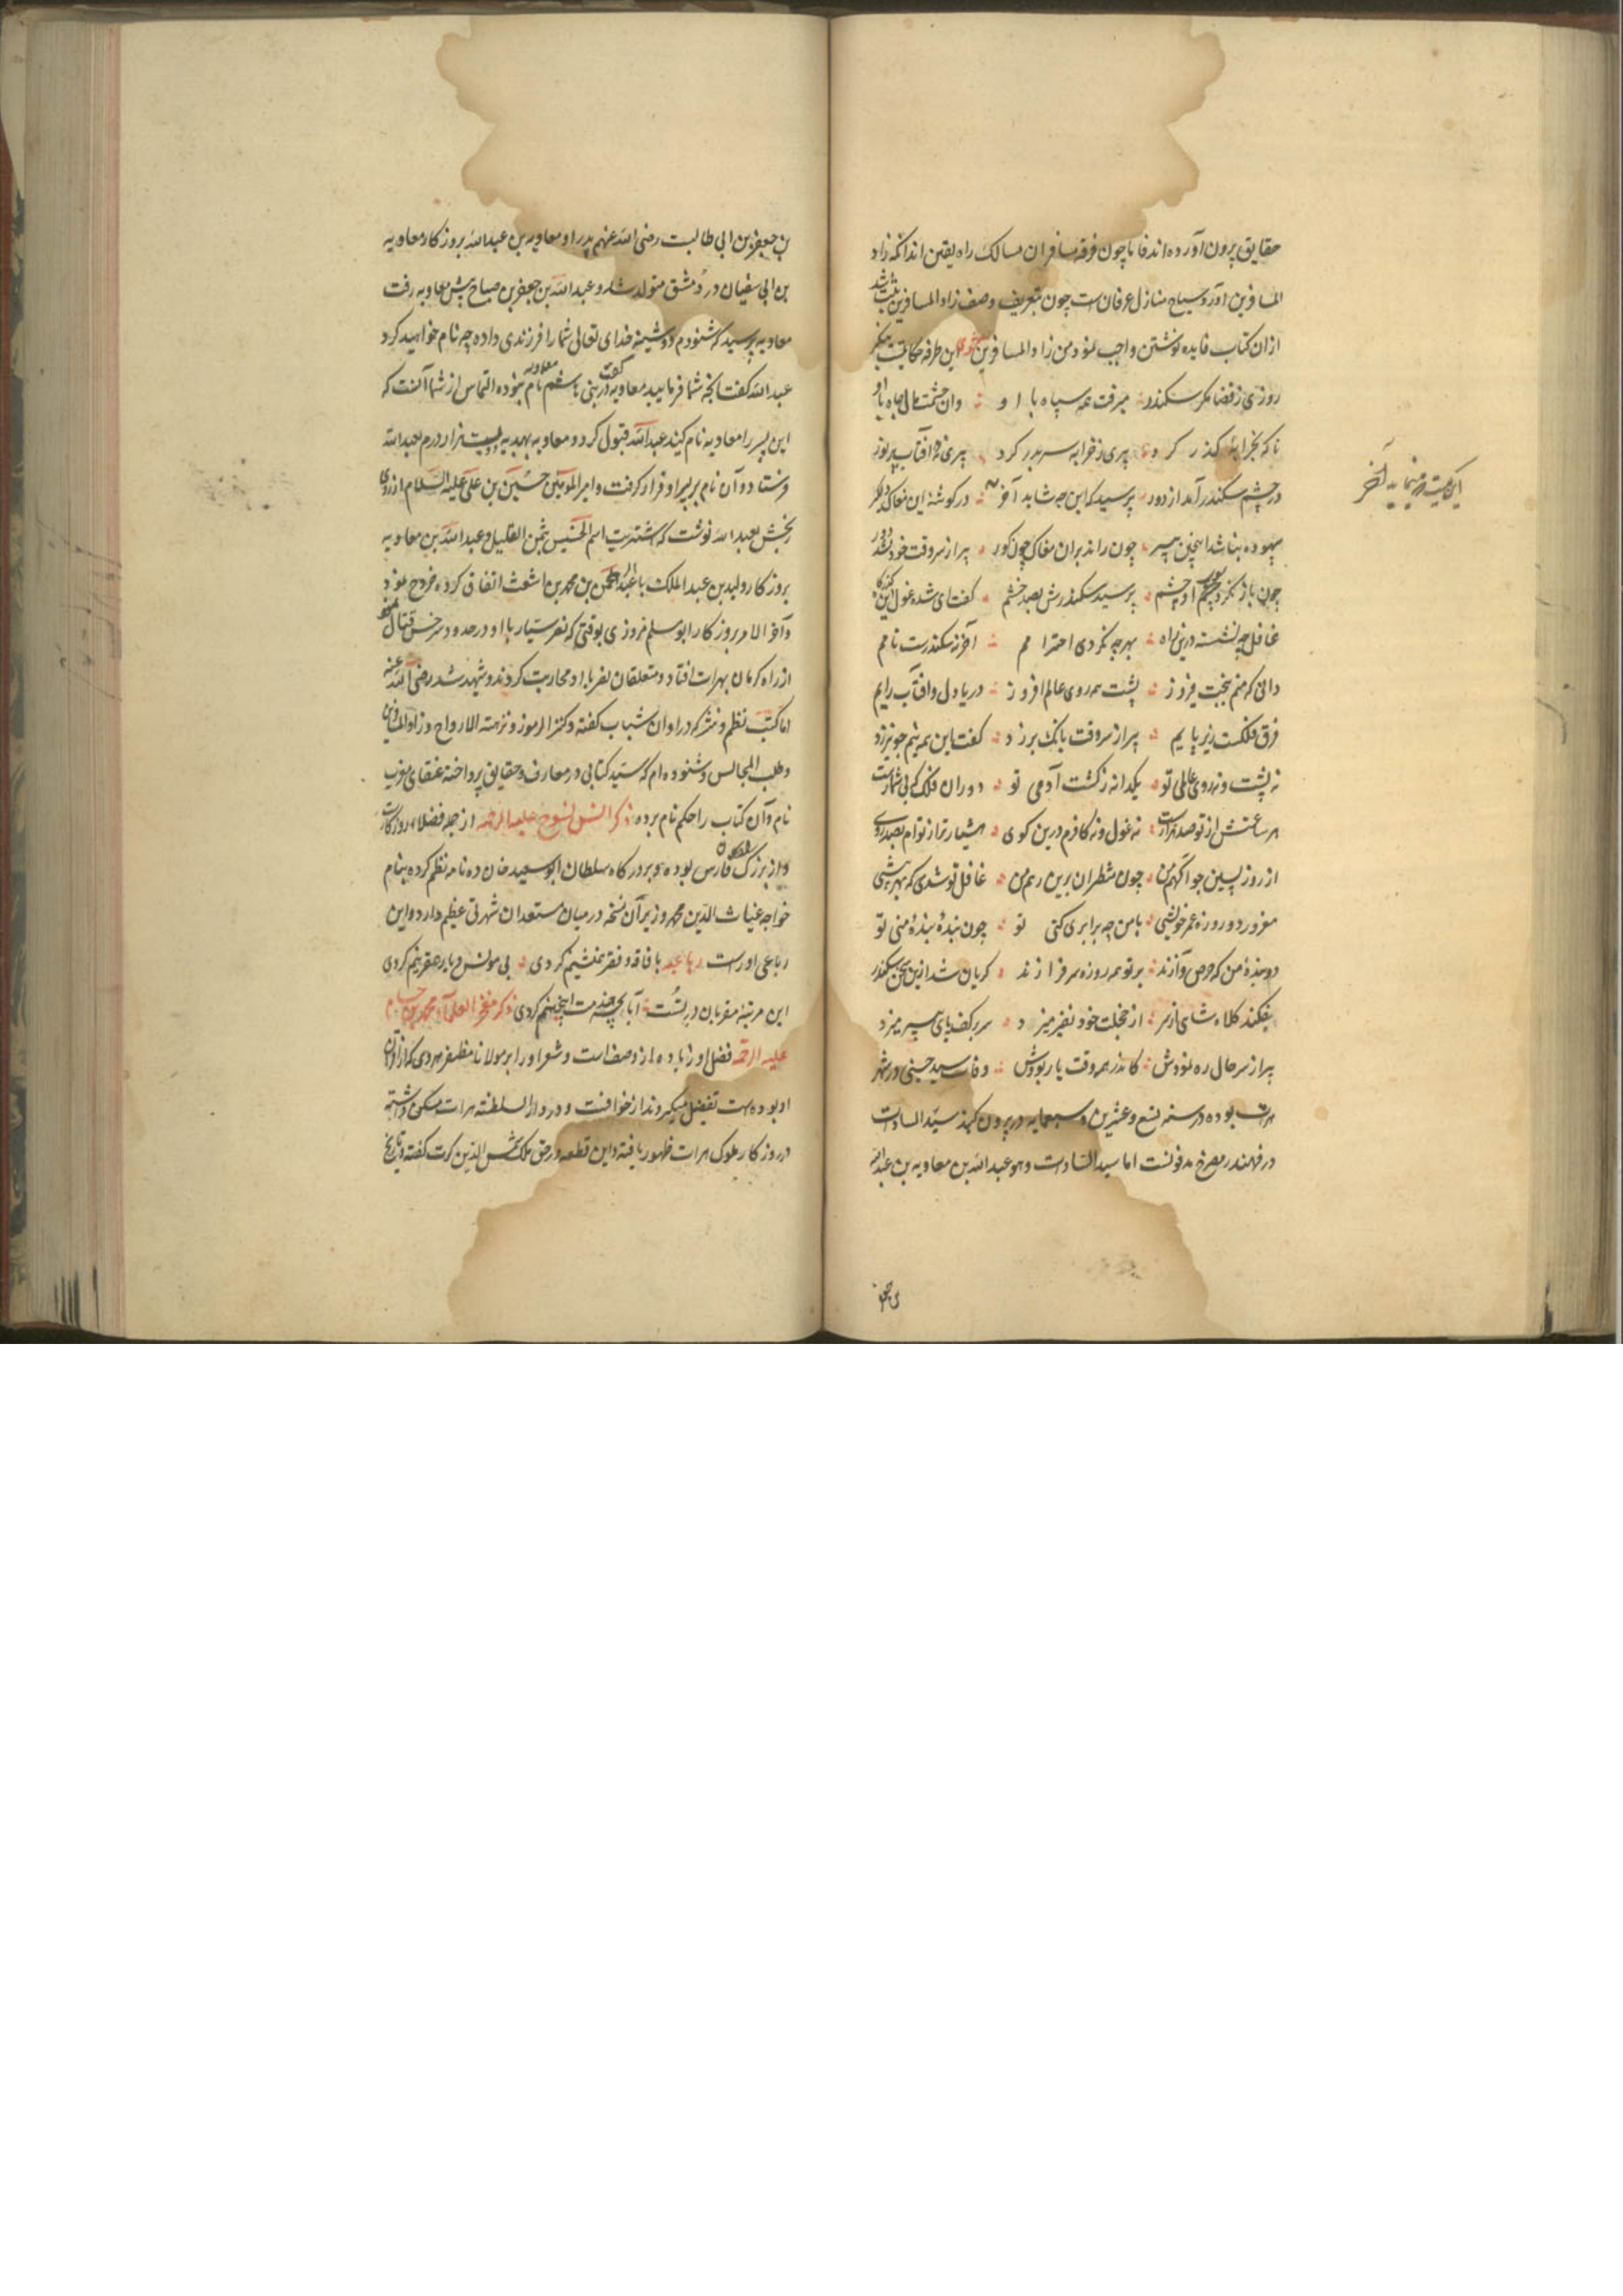 حقایق بیرون آورده‌اند فاما چون فرقه مسافران مسالک راه یقین‌اند آنکه زاد
المسافرین آورد و سیاح منازل عرفانست چون تعریف وصف زاد المسافرین
ازان کتاب فایده نوشتن واجب نمود من زاد المسافرین این طرفه حکایتیست بنگر
روزی ز قضا مگر سکندر میرفت همه سپاه با او وان حشمت و مال و جاه با او
ناگه بخرابهٔ گذر کرد پیری ز خرابه سر بدر کرد پیری نه و آفتاب پر نور
در چشم سکندر آمد از دور پرسید که این چه شاید آخر در گوشه این مغاک دلگیر
بیهوده نباشد اینچنین پیر چون راند بران مغاک چون گور پیر از سر وقت خود نشد دور
چون باز نکرد او چشم پرسید سکندرش بصد خشم گفت ای شده غول این گذرگاه
غافل چه نشسته درین راه بهر چه نکردی احترامم آخر نه سکندرست نامم
دانی که منم ببخت فیروز پشت همه روی عالم افروز دریا دل و آفتاب رایم
فرق فلکست زیر پایم پیر از سر وقت بانک برزد گفت این همه نیم جو نیرزد
نه پشت و نه روی عالمی تو یکدانه ز کشت آدمی تو دوران فلک که بی شمارست
هر ساعتش از تو صد هزارست نه غول و نه کافرم درین کوی هشیارتر از توام بصد روی
از روز پسین چو آگهم من چون منتظران برین رهم من غافل تو شدی که بهر بیشی
مغرور دو روزه عمر خویشی با من چه برابری کنی تو چون بندهٔ بندهٔ منی تو
دو بندهٔ من که حرص و آزند بر تو همه روزه سرفرازند گریان شد ازین سخن سکندر
بفکند کلاه شاهی از سر از خجلت خود نفیر میزد سر بر کف پای پیر میزد
پیر از سر حال ره نمودش کاندر همه وقت یار بودش وفات سید حسینی در شهر
هرات بوده در سنه تسع و عشرین و سبعمایه در بیرون گنبد سید السادات
در قهندز مصرخ مدفونست اما سید السادات و هو عبدالله بن معاویه بن عبدالله
بن جعفر بن ابی طالبست رضی الله عنهم پدر او معاویه بن عبدالله بروزگار معاویه
بن ابی سفیان در دمشق متولد شد و عبدالله بن جعفر بن صباح پیش معاویه رفت
معاویه پرسید که شنودم دوشینه خدای تعالی شما را فرزندی داده چه نام خواهید کرد
عبدالله گفت آنچه شما فرمایید معاویه گفت در بنی هاشم نام معاویه نبوده التماس از شما آنست که
این پسر را معاویه نام کنید عبدالله قبول کرد و معاویه بهدیه دویست هزار درم بعبدالله
فرستاد و آن نام بر پسر او قرار گرفت و امیر المومنین حسین بن علی علیه السلام از روی
رنجش بعبدالله نوشت که اشتریت اسم الخسیس بثمن القلیل و عبدالله بن معاویه
بروزگار ولید بن عبدالملک با عبدالرحمن بن محمد بن اشعث اتفاق کرده خروج نمود
و آخر الامر بروزگار ابومسلم مروزی بوقتی که نصر سیار با او در حدود سرخس قتال
از راه کرمان بهرات افتاد و متعلقان نصر با او محاربت کردند و شهید شد رضی الله عنه
اما کتب نظم و نثر که در اوان شباب گفته و کنز الرموز و نزهت الارواح و زاد المسافرین
و طلب المجالس و شنوده‌ام که سید کتابی در معارف و حقایق پرداخته عنقای مغرب
نام و آن کتاب را حکم نام برده ذکر علیه الرحمه از جمله فضلاء روزگارست
و از بزرگ فارس بوده و بر درگاه سلطان ابوسعید خان ده نامه نظم کرده بنام
خواجه غیاث الدین محمد وزیر آن نسخه در میان مستعدان شهرتی عظیم دارد و این
رباعی اوراست رباعیه با فاقه و فقر همنشینم کردی بی مونس و یار و هم قرینم کردی
این مرتبهٔ مقربان در تست آیا بچه خدمت اینچنینم کردی ذکر مفخر العلماء محمد بن حسام
علیه الرحمة فضل او زیاده از وصف است و شعر او را بر مولانا مظفر هروی که از اقران
او بوده‌ست تفضیل میکردند از خوافست و در دار السلطنه هرات مسکن داشته
در روزگار ملوک هرات ظهور یافته و این قطعه در حق ملک شمس الدین کرت گفته و تاریخ